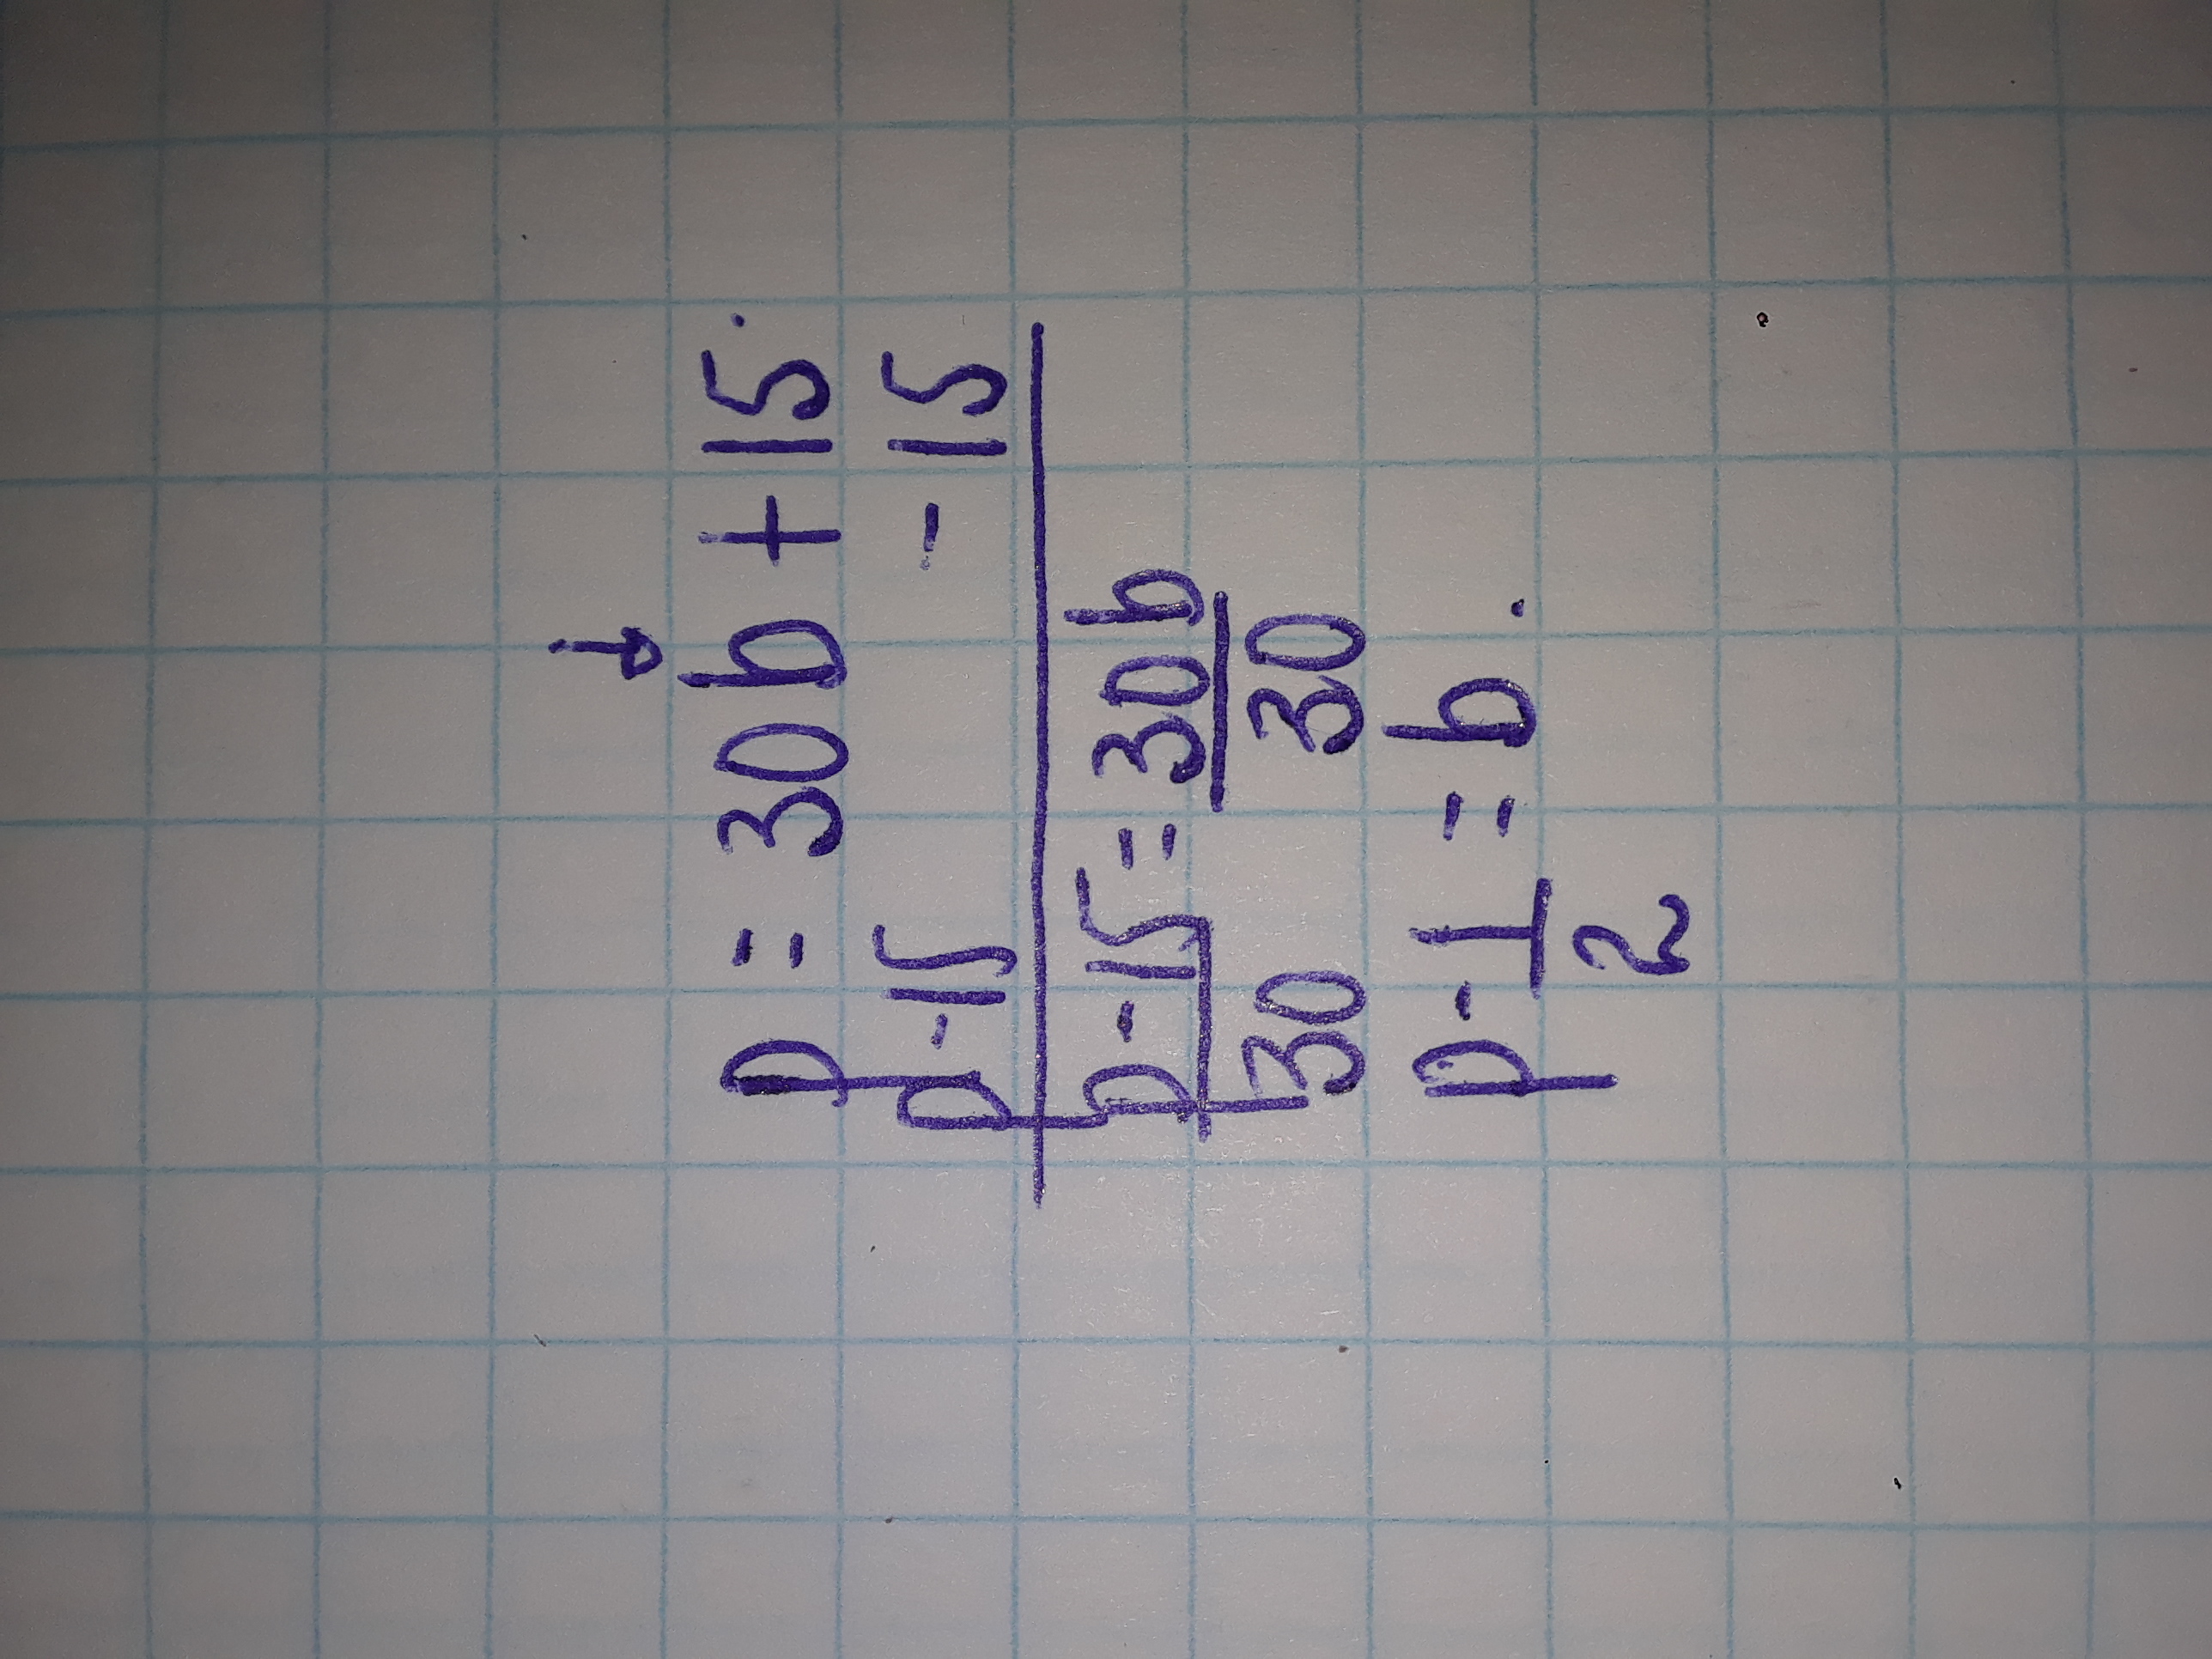 ↓
p = 30b + 15.
p - 15 - 15
p - 15 = 30b
30 30
p - 1 = b.
2